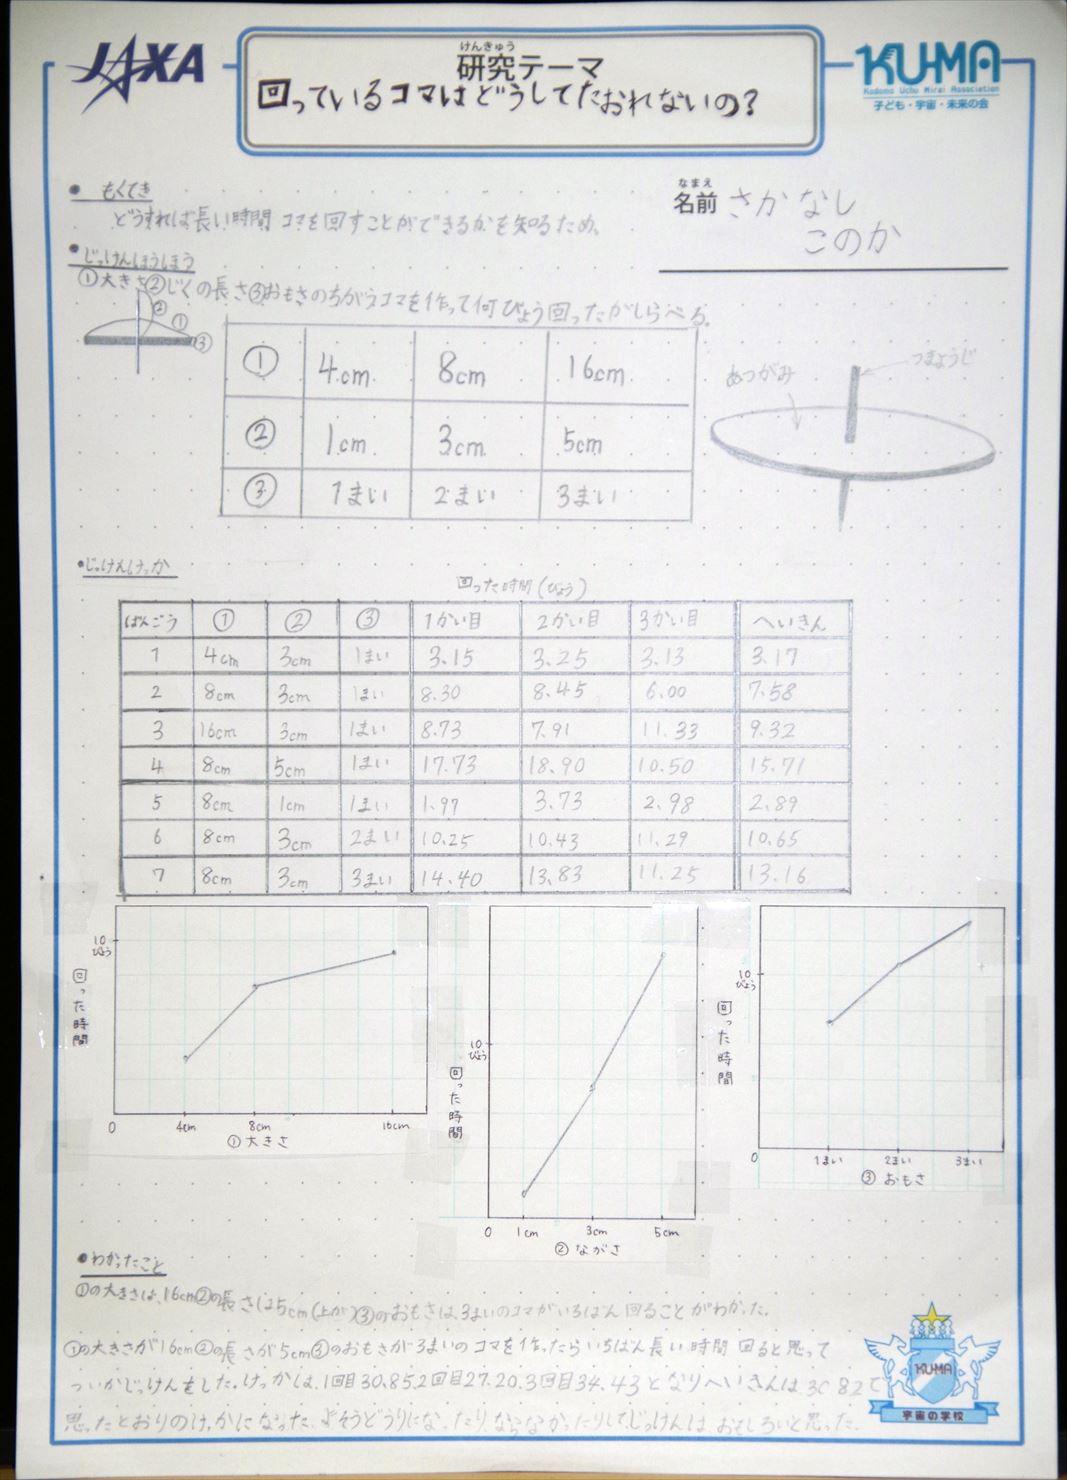 JAXA
けんきゅう
研究テーマ
回っているコマはどうしてたおれないの？
KU-MA
Kodomo Uchu Mirai Association
子ども・宇宙・未来の会
なまえ
名前 さかなし
このか
● もくてき
どうすれば長い時間コマを回すことができるかを知るため。
● じっけんほうほう
①大きさ②じくの長さ③おもさのちがうコマを作って何びょう回ったかしらべる。
② ① ③
① 4cm 8cm 16cm
② 1cm 3cm 5cm
③ 1まい 2まい 3まい
あつがみ
つまようじ
●じっけんけっか
回った時間(びょう)
ばんごう ① ② ③ 1かい目 2かい目 3かい目 へいきん
1 4cm 3cm 1まい 3.15 3.25 3.13 3.17
2 8cm 3cm 1まい 8.30 8.45 6.00 7.58
3 16cm 3cm 1まい 8.73 7.91 11.33 9.32
4 8cm 5cm 1まい 17.73 18.90 10.50 15.71
5 8cm 1cm 1まい 1.97 3.73 2.98 2.89
6 8cm 3cm 2まい 10.25 10.43 11.29 10.65
7 8cm 3cm 3まい 14.40 13.83 11.25 13.16
10
びょう
回った時間
0 4cm 8cm 16cm
①大きさ
10
びょう
回った時間
0 1cm 3cm 5cm
②ながさ
10
びょう
回った時間
0 1まい 2まい 3まい
③おもさ
●わかったこと
①の大きさは、16cm②の長さは5cm(上が)③のおもさは、3まいのコマがいちばん回ることがわかった。
①の大きさが16cm②の長さが5cm③のおもさが3まいのコマを作ったらいちばん長い時間回ると思って
ついかじっけんをした。けっかは、1回目30.85、2回目27.20、3回目34.43となりへいきんは、30.82で
思ったとおりのけっかになった。よそうどうりになったりならなかったりしてじっけんは、おもしろいと思った。
KUMA
宇宙の学校